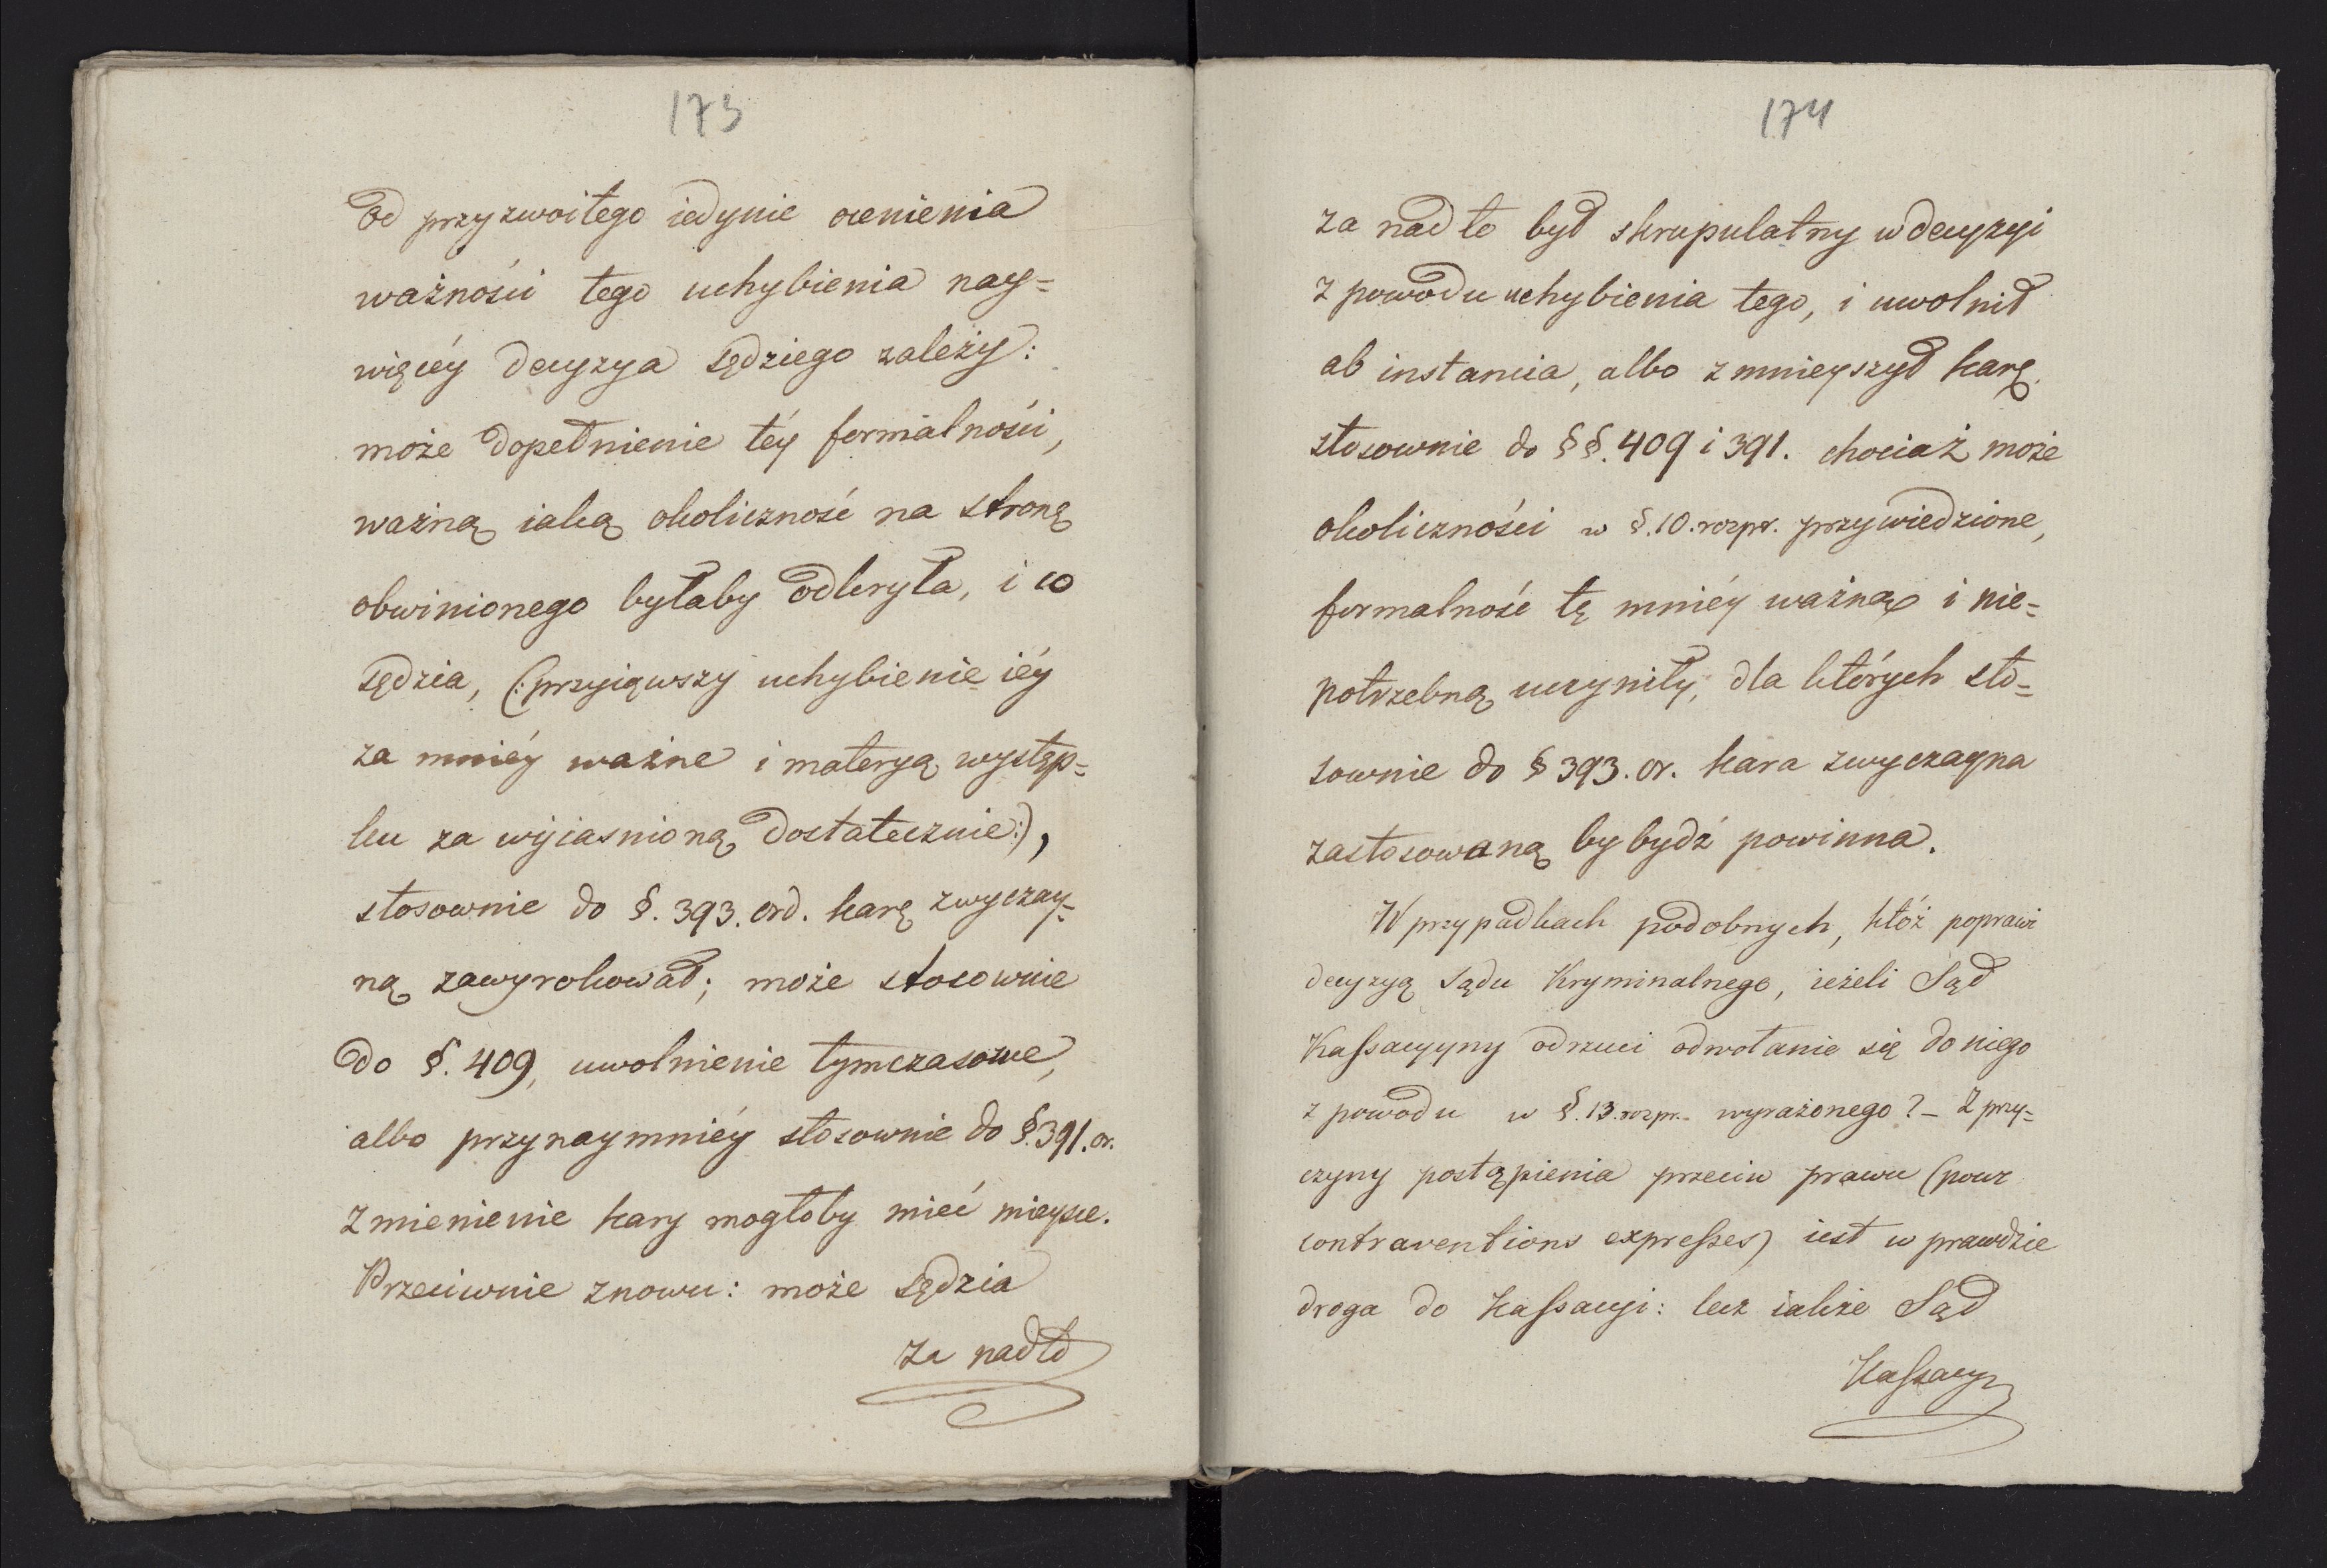 173
od przyzwoitego iedynie ocenienia
ważności tego uchybienia nay=
więcéy decyzya sędziego zależy:
może dopełnienie téy formalności,
ważną iaką okoliczność na stronę
obwinionego byłaby odkryła, i co
sędzia, (:przyiąwszy uchybienie iéy
za mniéy ważne i materyą występ=
ku za wyiasnioną dostatecznie:),
stosownie do §. 393. ord. karę zwyczay=
ną zawyrokował; może stosownie
do §. 409, uwolnienie tymczasowe,
albo przynaymniéy stosownie do §. 391. or.
zmienienie kary mogłoby mieć mieysce.
Przeciwnie znowu: może sędzia
za nadto
174
za nadto był skrupulatny w decyzyi
z powodu uchybienia tego, i uwolnił
ab instancia, albo zmnieyszył karę
stosownie do §§. 409 i 391. chociaż może
okoliczności w §. 10. rozpr. przywiedzione,
formalność tę mniéy ważną i nie=
potrzebną uczyniły, dla których sto=
sownie do § 393. or. kara zwyczayna
zastosowaną by bydź powinna.
W przypadkach podobnych, któż poprawi
decyzyą Sądu Kryminalnego, ieżeli Sąd
Kassacyyny odrzuci odwołanie się do niego
z powodu w §. 13. rozpr. wyrażonego? – Z przy=
czyny postąpienia przeciw prawu (pour
contraventions expresses) iest w prawdzie
droga do Kassacyi: lecz iakże Sąd
Kassacy